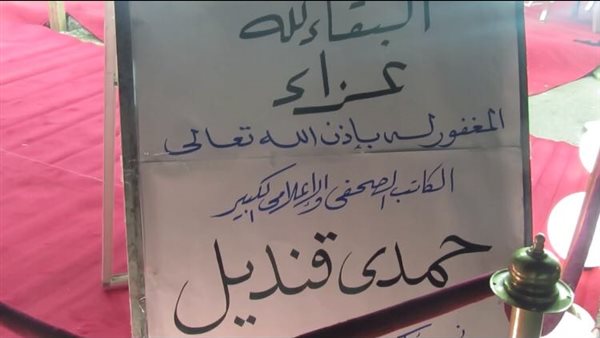 البقاء لله
عزاء
المغفور له بإذن الله تعالى
الكاتب الصحفى والإعلامى الكبير
حمدى قنديل